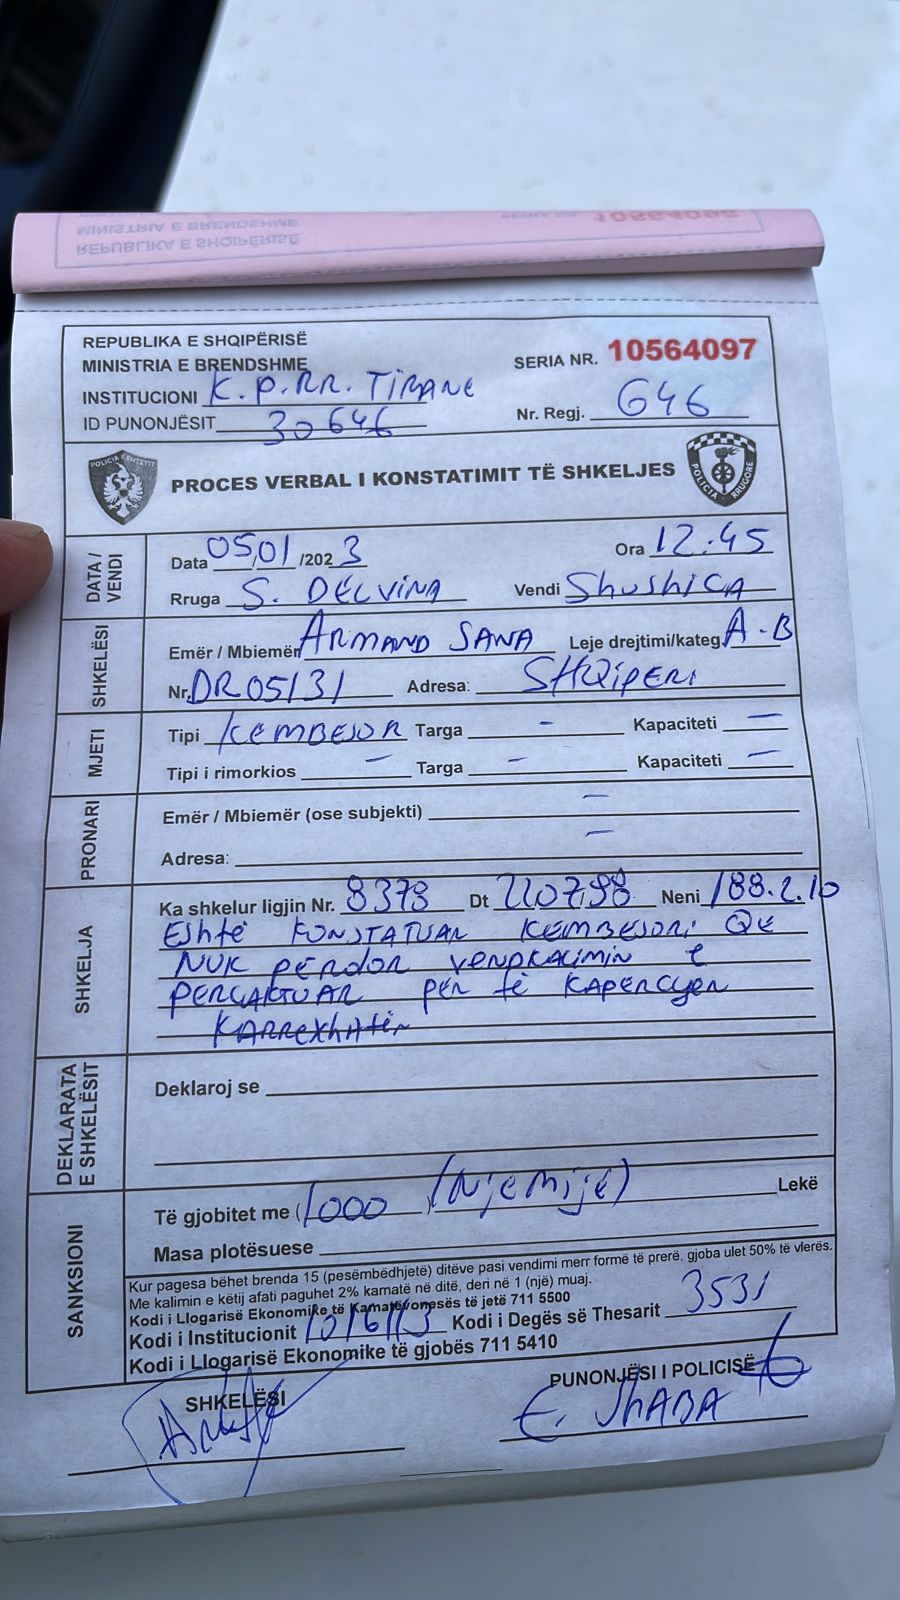 REPUBLIKA E SHQIPËRISË
MINISTRIA E BRENDSHME
SERIA NR. 10564097
INSTITUCIONI K.P.RR. TIRANE
ID PUNONJËSIT 30646 Nr. Regj. 646
POLICIA E SHTETIT
POLICIA RRUGORE
PROCES VERBAL I KONSTATIMIT TË SHKELJES
DATA / VENDI
Data 05/01/2023 Ora 12:45
Rruga S. DELVINA Vendi Shushica
SHKELËSI
Emër / Mbiemër ARMAND SANA Leje drejtimi/kateg. A-B
Nr. DR05131 Adresa: SHQIPERI
MJETI
Tipi KEMBESOR Targa - Kapaciteti -
Tipi i rimorkios - Targa - Kapaciteti -
PRONARI
Emër / Mbiemër (ose subjekti) -
Adresa: -
SHKELJA
Ka shkelur ligjin Nr. 8378 Dt 220798 Neni 188.2.10
Eshtë KONSTATUAR KEMBESORi QE
NUK PËRDOR VENDKALIMIN E
PERCAKTUAR për të KAPERCyer
KARREXHATËN
DEKLARATA E SHKELËSIT
Deklaroj se
SANKSIONI
Të gjobitet me (1000) (Njemijë) Lekë
Masa plotësuese
Kur pagesa bëhet brenda 15 (pesëmbëdhjetë) ditëve pasi vendimi merr formë të prerë, gjoba ulet 50% të vlerës.
Me kalimin e këtij afati paguhet 2% kamatë në ditë, deri në 1 (një) muaj.
Kodi i Llogarisë Ekonomike të Kamatëvonesës të jetë 711 5500
Kodi i Institucionit 1016113 Kodi i Degës së Thesarit 3531
Kodi i Llogarisë Ekonomike të gjobës 711 5410
SHKELËSI PUNONJËSI I POLICISË
E. SHABA